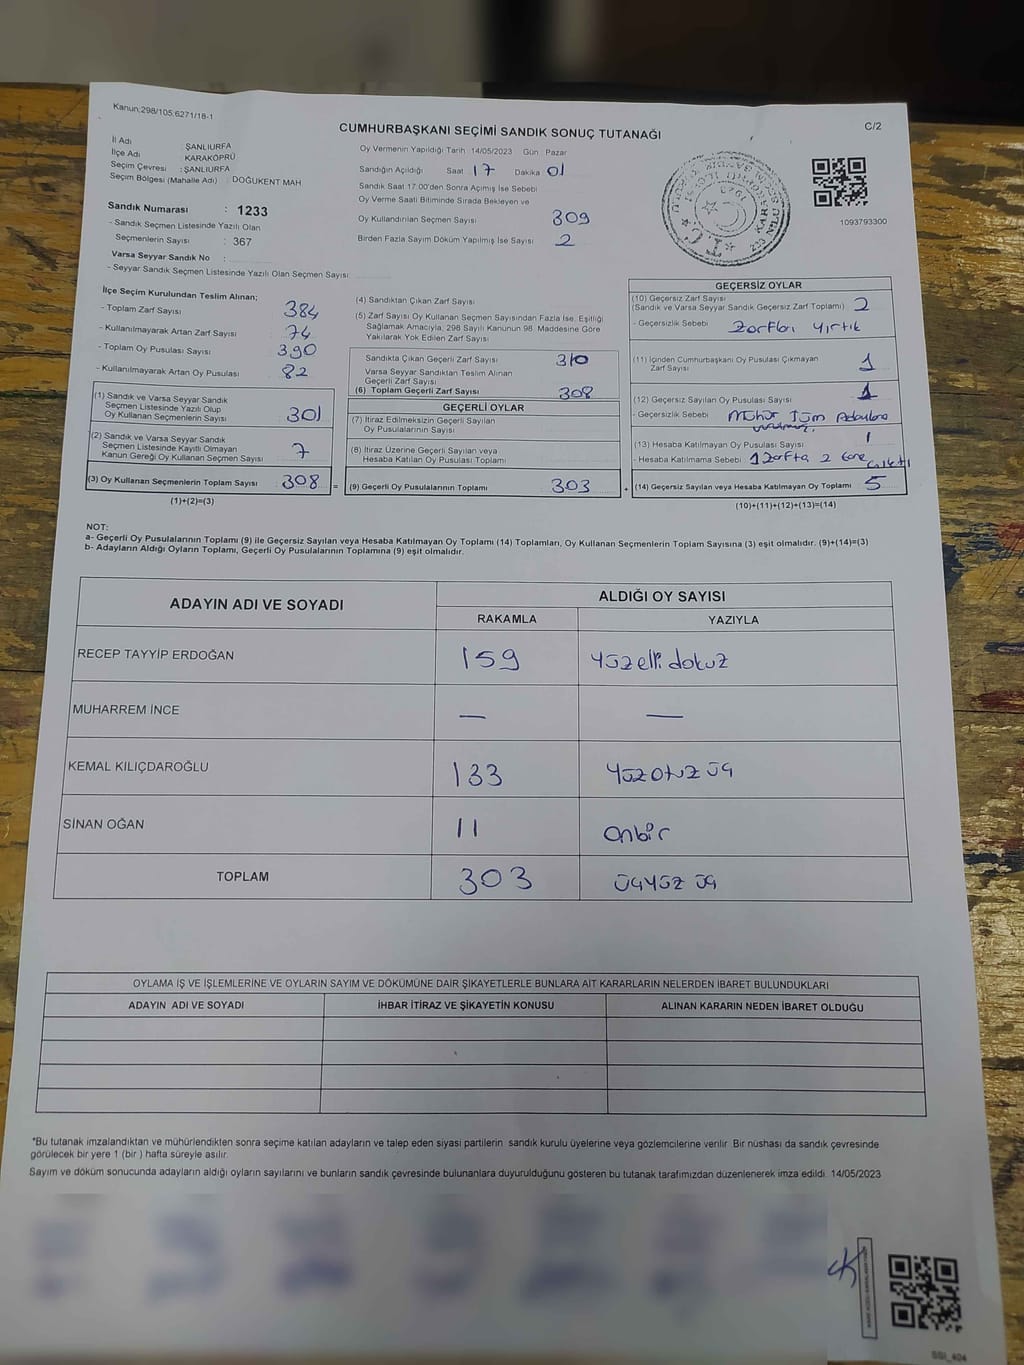 Kanun;298/105;6271/18-1
C/2
CUMHURBAŞKANI SEÇİMİ SANDIK SONUÇ TUTANAĞI
İl Adı : ŞANLIURFA
İlçe Adı : KARAKÖPRÜ
Seçim Çevresi : ŞANLIURFA
Seçim Bölgesi (Mahalle Adı) : DOĞUKENT MAH.
Sandık Numarası : 1233
- Sandık Seçmen Listesinde Yazılı Olan
Seçmenlerin Sayısı : 367
Varsa Seyyar Sandık No :
- Seyyar Sandık Seçmen Listesinde Yazılı Olan Seçmen Sayısı:
Oy Vermenin Yapıldığı Tarih :14/05/2023 Gün : Pazar
Sandığın Açıldığı Saat 17 Dakika 01
Sandık Saat 17:00'den Sonra Açımış İse Sebebi
Oy Verme Saati Bitiminde Sırada Bekleyen ve
Oy Kullandırılan Seçmen Sayısı 309
Birden Fazla Sayım Döküm Yapılmış İse Sayısı 2
1093793300
İlçe Seçim Kurulundan Teslim Alınan;
- Toplam Zarf Sayısı 384
- Kullanılmayarak Artan Zarf Sayısı 74
- Toplam Oy Pusulası Sayısı 390
- Kullanılmayarak Artan Oy Pusulası 82
(1) Sandık ve Varsa Seyyar Sandık
Seçmen Listesinde Yazılı Olup
Oy Kullanan Seçmenlerin Sayısı 301
(2) Sandık ve Varsa Seyyar Sandık
Seçmen Listesinde Kayıtlı Olmayan
Kanun Gereği Oy Kullanan Seçmen Sayısı 7
(3) Oy Kullanan Seçmenlerin Toplam Sayısı 308 =
(1)+(2)=(3)
(4) Sandıktan Çıkan Zarf Sayısı
(5) Zarf Sayısı Oy Kullanan Seçmen Sayısından Fazla İse, Eşitliği
Sağlamak Amacıyla, 298 Sayılı Kanunun 98. Maddesine Göre
Yakılarak Yok Edilen Zarf Sayısı
Sandıkta Çıkan Geçerli Zarf Sayısı 310
Varsa Seyyar Sandıktan Teslim Alınan
Geçerli Zarf Sayısı
(6) Toplam Geçerli Zarf Sayısı 308
GEÇERLİ OYLAR
(7) İtiraz Edilmeksizin Geçerli Sayılan
Oy Pusulalarının Sayısı
(8) İtiraz Üzerine Geçerli Sayılan veya
Hesaba Katılan Oy Pusulası Toplamı
(9) Geçerli Oy Pusulalarının Toplamı 303 +
GEÇERSİZ OYLAR
(10) Geçersiz Zarf Sayısı
(Sandık ve Varsa Seyyar Sandık Geçersiz Zarf Toplamı) 2
- Geçersizlik Sebebi Zarfları yırtık
(11) İçinden Cumhurbaşkanı Oy Pusulası Çıkmayan
Zarf Sayısı 1
(12) Geçersiz Sayılan Oy Pusulası Sayısı 1
- Geçersizlik Sebebi Mühür Tüm Adaylara
(13) Hesaba Katılmayan Oy Pusulası Sayısı 1
- Hesaba Katılmama Sebebi 1 Zarfta 2 tane çıktı
(14) Geçersiz Sayılan veya Hesaba Katılmayan Oy Toplamı 5
(10)+(11)+(12)+(13)=(14)
NOT:
a- Geçerli Oy Pusulalarının Toplamı (9) ile Geçersiz Sayılan veya Hesaba Katılmayan Oy Toplamı (14) Toplamları, Oy Kullanan Seçmenlerin Toplam Sayısına (3) eşit olmalıdır. (9)+(14)=(3)
b- Adayların Aldığı Oyların Toplamı, Geçerli Oy Pusulalarının Toplamına (9) eşit olmalıdır.
ADAYIN ADI VE SOYADI ALDIĞI OY SAYISI
RAKAMLA YAZIYLA
RECEP TAYYİP ERDOĞAN 159 yüzelli dokuz
MUHARREM İNCE — —
KEMAL KILIÇDAROĞLU 133 yüzotuz üç
SİNAN OĞAN 11 onbir
TOPLAM 303 üçyüz üç
OYLAMA İŞ VE İŞLEMLERİNE VE OYLARIN SAYIM VE DÖKÜMÜNE DAİR ŞİKAYETLERLE BUNLARA AİT KARARLARIN NELERDEN İBARET BULUNDUKLARI
ADAYIN ADI VE SOYADI İHBAR İTİRAZ VE ŞİKAYETİN KONUSU ALINAN KARARIN NEDEN İBARET OLDUĞU
*Bu tutanak imzalandıktan ve mühürlendikten sonra seçime katılan adayların ve talep eden siyasi partilerin sandık kurulu üyelerine veya gözlemcilerine verilir. Bir nüshası da sandık çevresinde
görülecek bir yere 1 (bir ) hafta süreyle asılır.
Sayım ve döküm sonucunda adayların aldığı oyların sayılarını ve bunların sandık çevresinde bulunanlara duyurulduğunu gösteren bu tutanak tarafımızdan düzenlenerek imza edildi. 14/05/2023